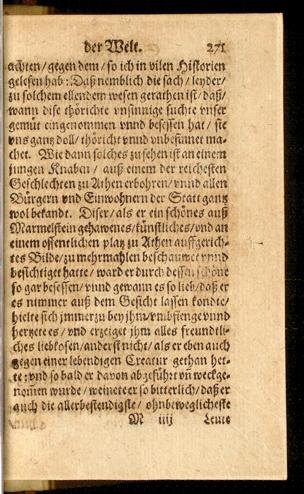 der Welt. 271
achten / gegen dem / so ich in vilen Historien
gelesen hab: Daß nemblich die sach / leyder /
zu solchem ellendem wesen gerathen ist / daß /
wann dise thörichte vnsinnige suchte vnser
gemüt eingenommen vnnd besessen hat / sie
vns gantz doll / thöricht vnnd vnbesinnet ma-
chet. Wie dann solches zu sehen ist an einem
jungen Knaben / auß einem der reichesten
Geschlechten zu Athen erbohren / vnnd allen
Bürgern vnd Einwohnern der Statt gantz
wol bekandt. Diser / als er ein schönes auß
Marmelstein gehawenes / künstliches / vnd an
einem offentlichen platz zu Athen auffgerich-
tes Bilde / zu mehrmahlen beschauwet vnnd
besichtiget hatte / ward er durch dessen schöne
so gar besessen / vnnd gewann es so lieb / daß er
es nimmer auß dem Gesicht lassen kondte /
hielte sich immer zu bey jhm / vmbfienge vnnd
hertzete es / vnd erzeiget jhm alles freundtli-
ches liebkosen / anderst nicht / als er eben auch
gegen einer lebendigen Creatur gethan het-
te: vnd so bald er davon abgeführt vn̄ weckge-
nommen wurde / weinete er so bitterlich / daß er
auch die allerbestendigste / ohnbeweglicheste
M iiij Leute